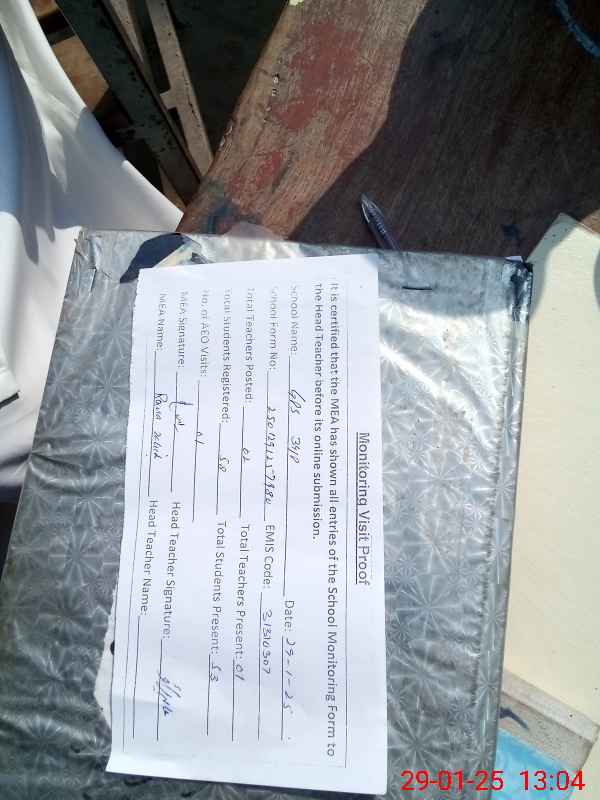 Monitoring Visit Proof
It is certified that the MEA has shown all entries of the School Monitoring Form to
the Head Teacher before its online submission.
School Name: GPS 39P Date: 29-1-25
School Form No: EMIS Code: 31310307
Total Teachers Posted: 02 Total Teachers Present: 01
Total Students Registered: 58 Total Students Present: 53
No. of AEO Visits: 01
MEA Signature: Head Teacher Signature:
MEA Name: Head Teacher Name:
29-01-25 13:04